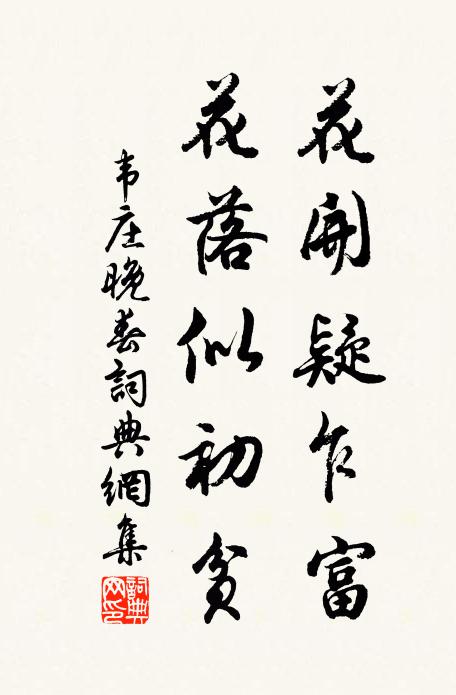 花開疑乍富
花落似初貧
韦庄晚春詞典網集
詞典网印